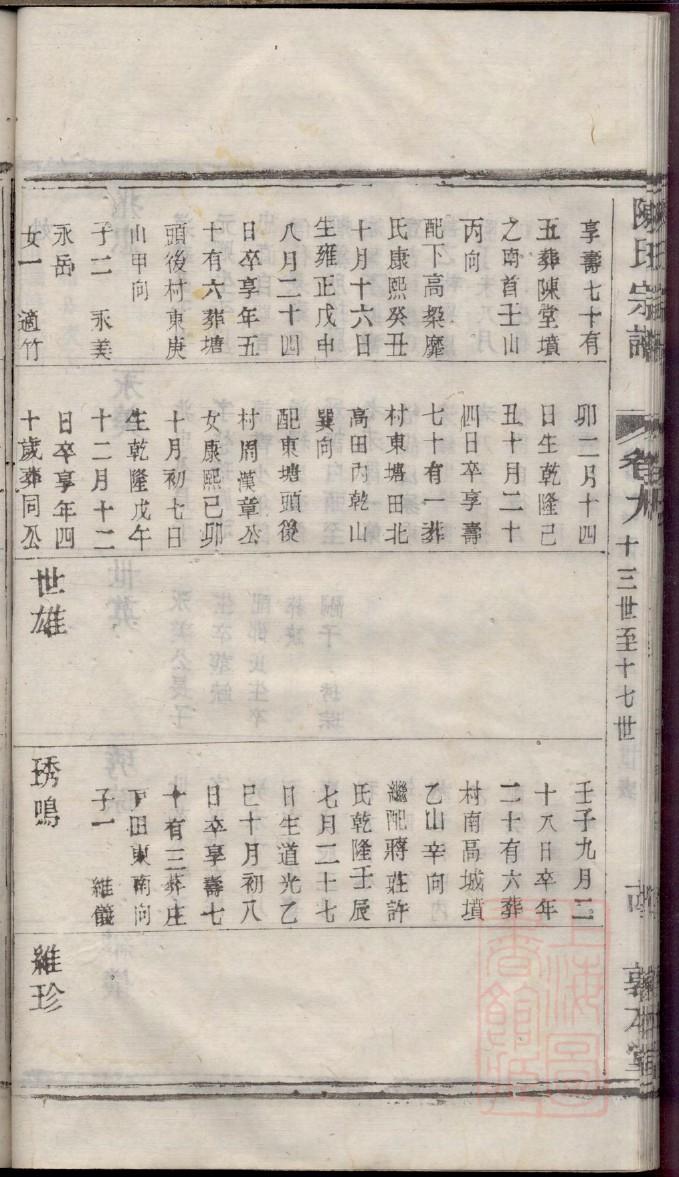 陳氏宗譜
卷九
十三世至十七世
敦本堂
享壽七十有
五葬陳堂墳
之南首壬山
丙向
配下高㮤靡
氏康熙癸丑
十月十六日
生雍正戊申
八月二十四
日卒享年五
十有六葬塘
頭後村東庚
山甲向
子二 永美
永岳
女一 適竹
卯二月十四
日生乾隆己
丑十月二十
四日卒享壽
七十有一葬
村東塘田北
高田內乾山
巽向
配東塘頭後
村周漢章公
女康熙己卯
十月初七日
生乾隆戊午
十二月十二
日卒享年四
十歲葬同公
世雄
壬子九月二
十八日卒年
二十有六葬
村南高城墳
乙山辛向
繼配蔣莊許
氏乾隆壬辰
七月二十七
日生道光乙
巳十月初八
日卒享壽七
十有三葬庄
下田東南向
子一 維儀
琇鳴
維珍
上海圖書館藏